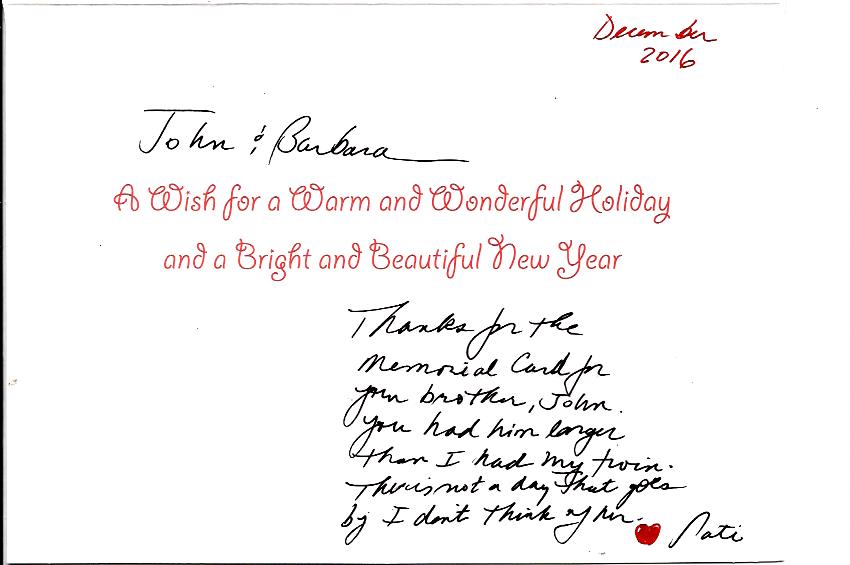 December
2016
John & Barbara
A Wish for a Warm and Wonderful Holiday
and a Bright and Beautiful New Year
Thanks for the
Memorial Card for
your brother, John.
You had him longer
than I had my twin.
There is not a day that goes
by I don't think of her.
Pati